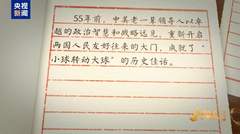 央视新闻
55年前，中美老一辈领导人以卓
越的政治智慧和战略远见，重新开启
两国人民友好往来的大门，成就了
“小球转动大球”的历史佳话。